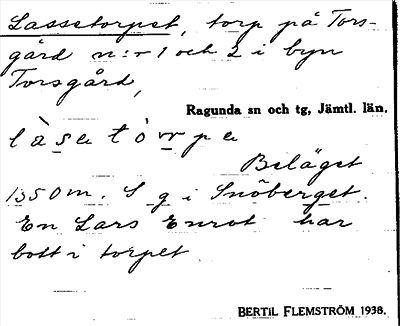 Lassetorpet, torp på Tors-
gård n:r 1 och 2 i byn
Torsgård,
Ragunda sn och tg, Jämtl. län.
làsetòrpe
Beläget
1350 m. S g i Snöberget.
En Lars Enrot har
bott i torpet
BERTIL FLEMSTRÖM 1938.